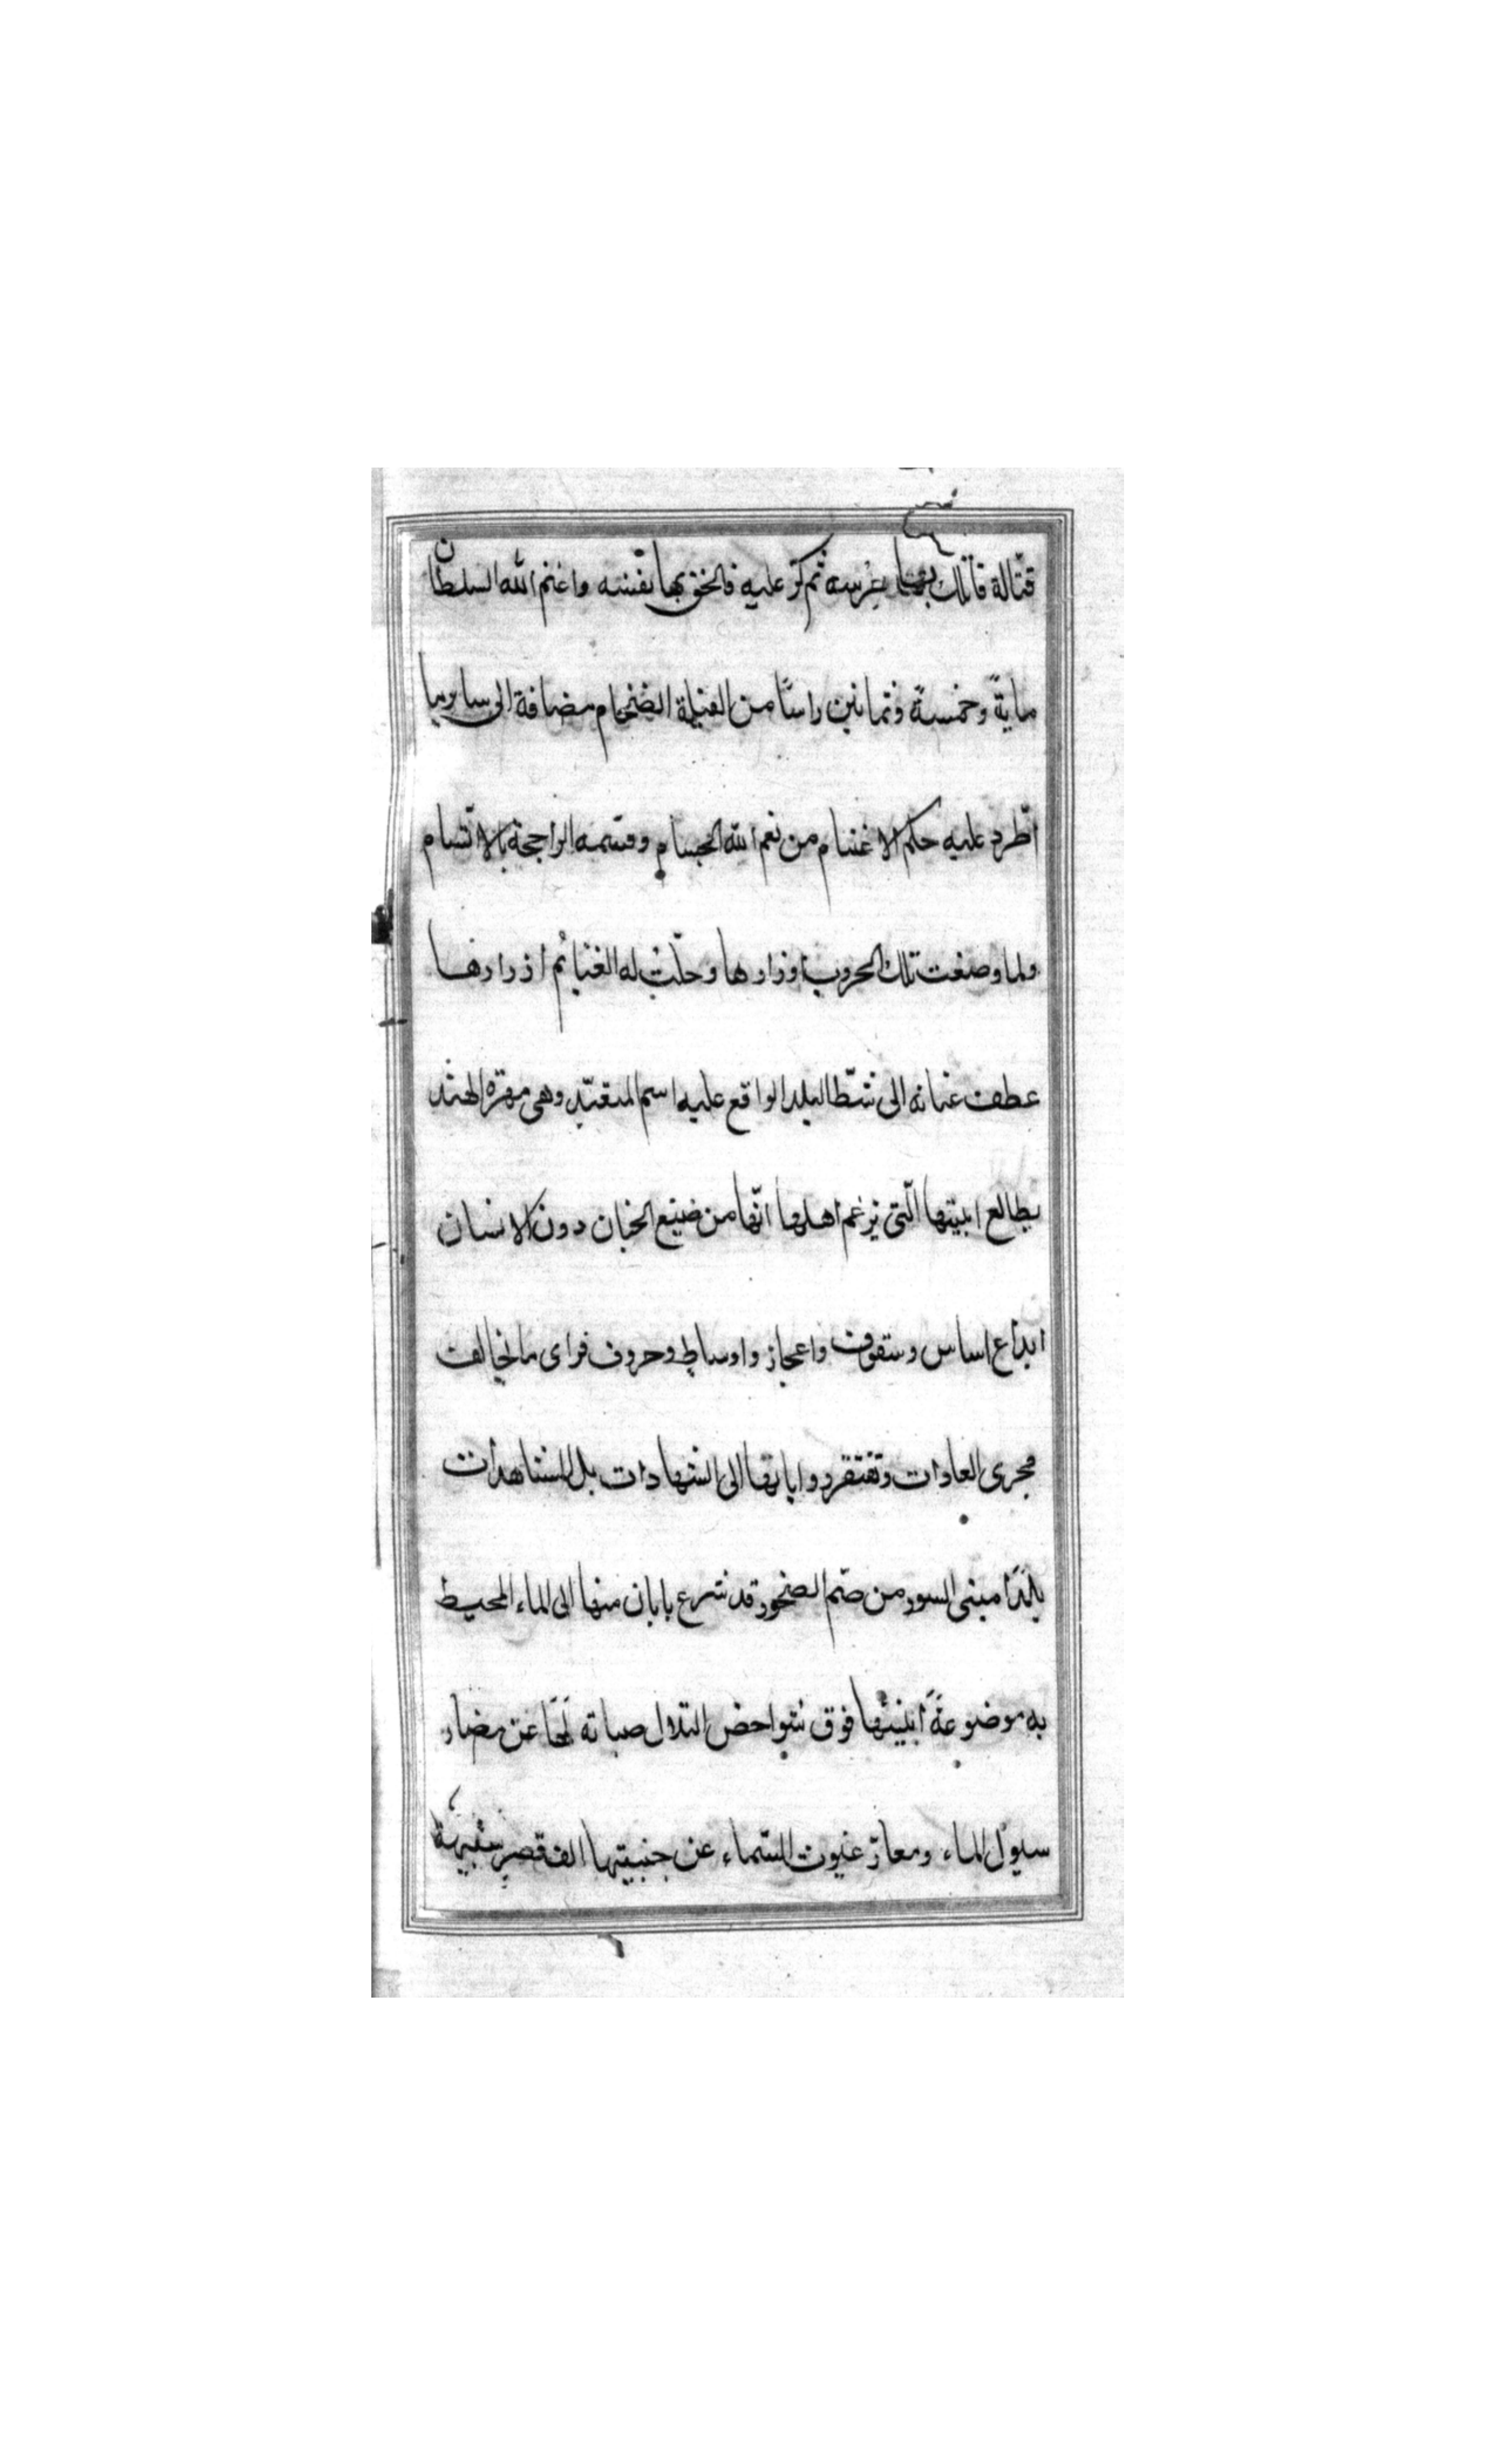 قتالة فاتلك بها عرسه ثم كرّ عليه فالحق بها نفسه واغنم الله السلطان
ماية وخمسة وثمانين راسًا من الفيلة الضخام مضافة الى سايرما
اطّرد عليه حكم الاغتنام من نعم الله الجسام وقسمه الراجحة بالاقسام
ولما وضعت تلك الحروب اوزارها وحلّت له الغنايُم اذرارها
عطف عنانه الى شطّ البلد الواقع عليه اسم المتعبّد وهي مهرّه الهند
يطالع ابنيتها الّتى يزعم اهلها انّها من ضيع الجنان دون الانسان
ابداع اساس وسقوف واعجاز واوساط وحروف فراى ما يخالف
مجرى العادات وتفتقر واياتها الى الشهادات بل المشاهدات
بلدًا مبنى السور من صمّ الصخور قد شرع بابان منها الى الماء المحيط
به موضوعةً ابنيتُها فوق شواحض التلال صيانه لها عن مضار
سيول الماء ومعارّ غيوث السّماء عن جنبيتها الف قصر شبيهة